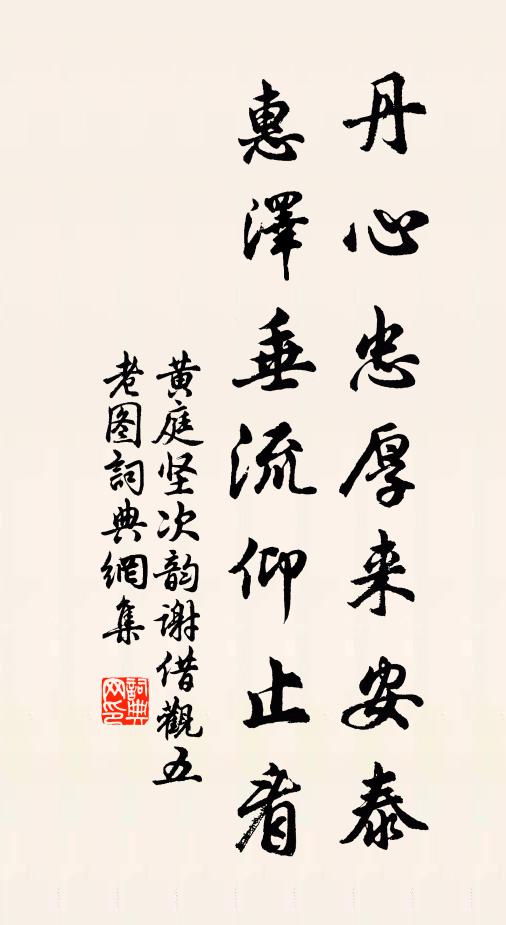 丹心忠厚来安泰
惠澤垂流仰止看
黄庭坚次韵谢借觀五
老图詞典網集
詞典
网印